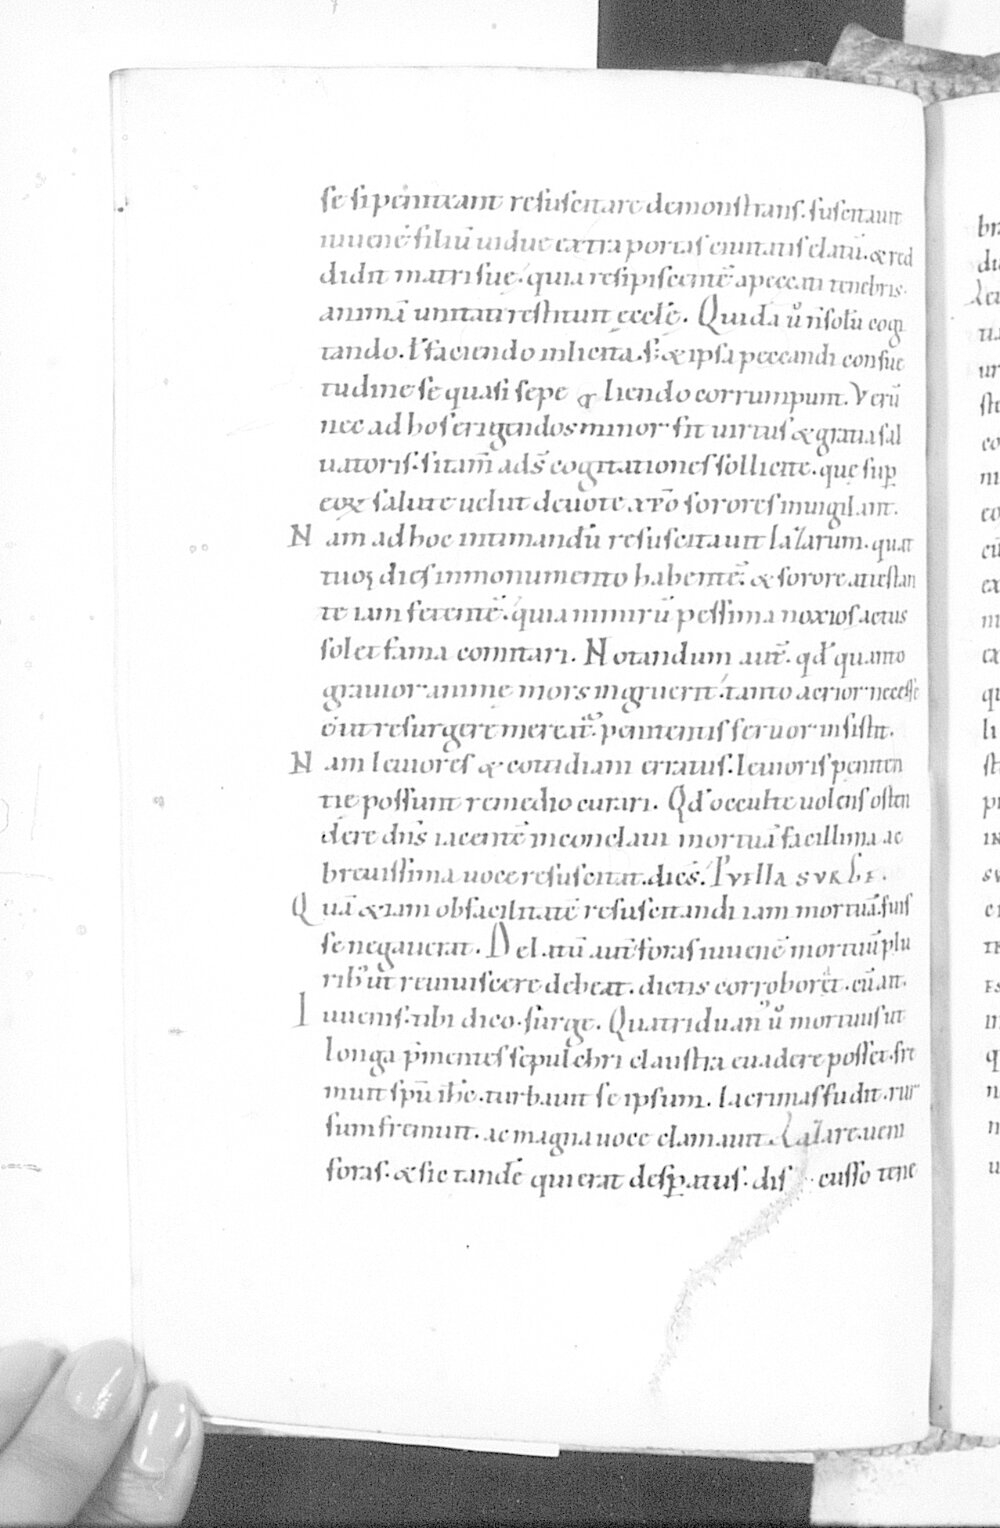 se si peniteant resuscitare demonstrans. suscitauit
iuuenē filiū uidue extra portas ciuitatis elatū. & red
didit matri sue. quia resipiscentē a peccati tenebris.
animā unitati restituit ęcclę. Quidā ů n̄ solū cogi
tando. ł faciendo inlicita. s; & ipsa peccandi consue
tudine se quasi sepe liendo corrumpunt. Verū
nec ad hos erigendos minor fit uirtus & gratia sal
uatoris. si tam̄ adsӯ cogitationes sollicite. quę sup̄
eoꝝ salute uelut deuote xp̄o sorores inuigilant.
N am ad hoc intimandū resuscitauit lazarum. quat
tuor dies in monumento habentē. & sorore attestan
te iam fetentē. quia nimirū pessima noxios actus
solet fama comitari. Notandum aut̄. qd̄ quanto
grauior animę mors ingruerit. tanto acrior necesse
ē ut resurgere mereat̄. penitentis feruor insistit.
N am leuiores & cottidiani erratus. leuioris peniten
tię possunt remedio curari. Qd̄ occulte uolens osten
dere dn̄s iacentē in conclaui mortuā facillima ac
breuissima uoce resuscitat. dicēs. Puella surge.
Q uā & iam ob facilitatē resuscitandi iam mortuā. fuis
se negauerat. Delatū aut̄ foras iuuenē mortuū plu
rib; ut reuiuiscere debeat. dictis corroboret. cū ait.
I uuenis. tibi dico. surge. Quatriduan᾽ ů mortuus ut
longa p̄mentes sepulchri claustra euadere posset. fre
muit spū ih̄c. turbauit se ipsum. lacrimas fudit. rur
sum fremuit. ac magna uoce clamauit. Lazare. ueni
foras. & sic tandē qui erat desꝑatus. dis cusso tene